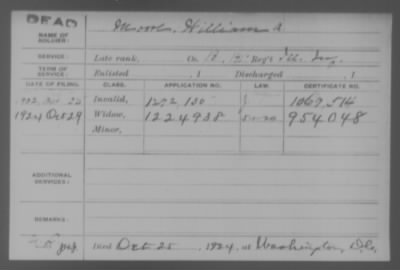 DEAD
NAME OF SOLDIER: Moore, William A.
SERVICE: Late rank, Co. Reg't Ill. Inf.
TERM OF SERVICE: Enlisted , 1 Discharged , 1
DATE OF FILING. CLASS. APPLICATION NO. LAW. CERTIFICATE NO.
Invalid, 1272,130
1924 Oct 29 Widow, 1224938 954048
Minor,
ADDITIONAL SERVICES:
REMARKS:
Died Oct 25, 1924, at Washington, D.C.